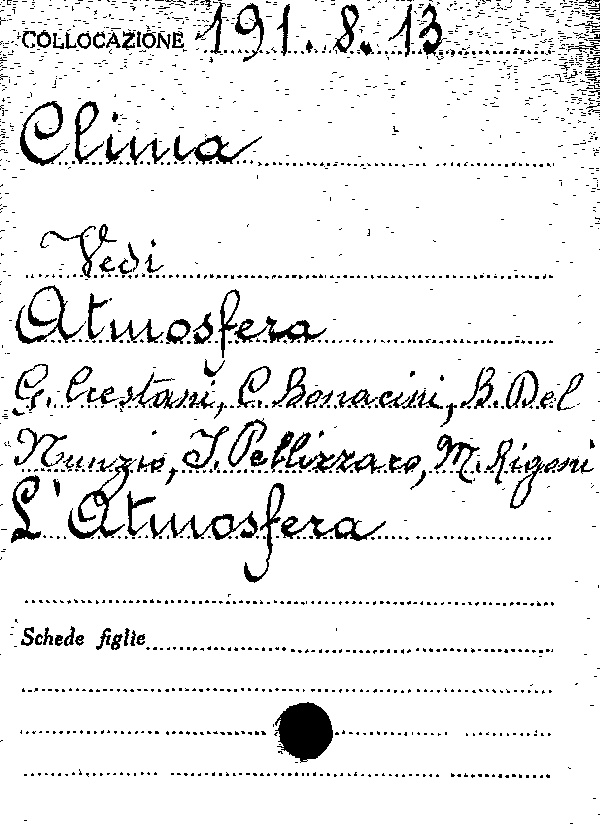 COLLOCAZIONE 191. 8. 13
Clima
Vedi
Atmosfera
G. Crestani, C. Bonacini, B. Del
Nunzio, I. Pellizzaro, M. Rigoni
L'Atmosfera
Schede figlie